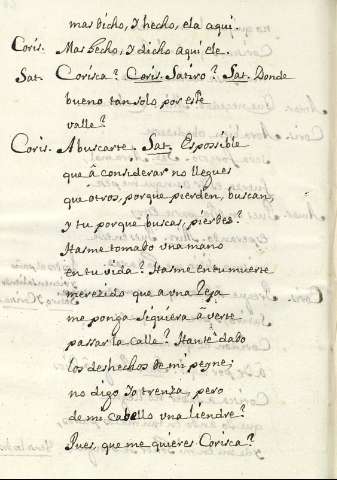 mas dicho, y hecho, ela aqui.
Coris. Mas hecho, y dicho aqui ele.
Sat. Corisca? Coris. Satiro? Sat. Donde
bueno tan solo por este
valle?
Coris. A buscarte. Sat. Es posible
que â considerar no llegues
que otros, porque pierden, buscan,
y tu porque buscas, pierdes?
Hasme tomado una mano
en tu vida? Hasme en tu muerte
merezido que a una Reja
me ponga siquiera â verte
passar la calle? Hante dado
los deshechos de mi peyne;
no digo yo trenza, pero
de mi cabello una liendre?
Pues, que me quieres Corisca?